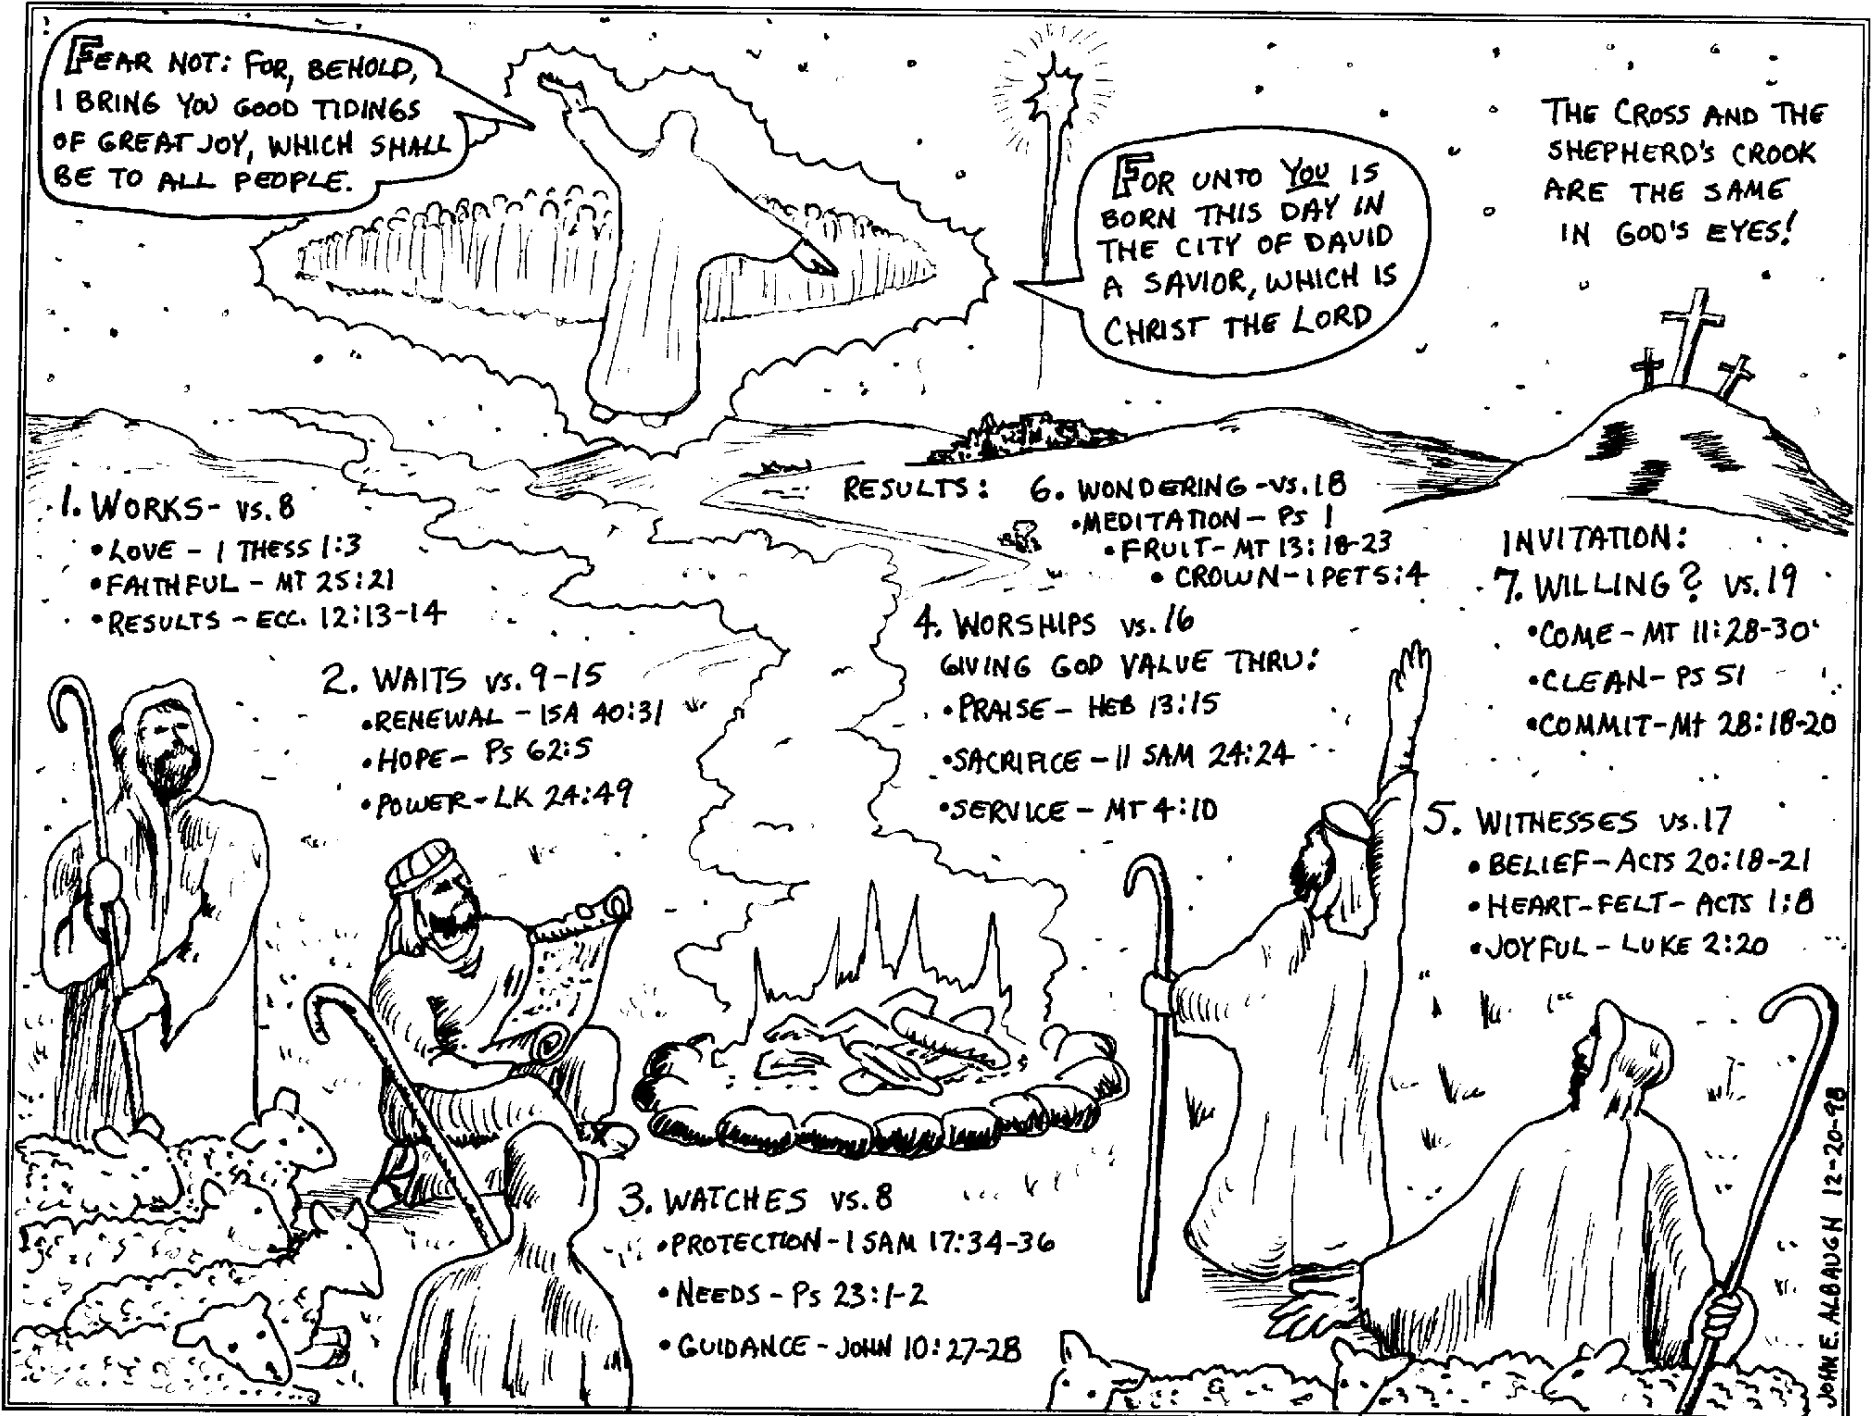 FEAR NOT: FOR, BEHOLD,
I BRING YOU GOOD TIDINGS
OF GREAT JOY, WHICH SHALL
BE TO ALL PEOPLE.
FOR UNTO YOU IS
BORN THIS DAY IN
THE CITY OF DAVID
A SAVIOR, WHICH IS
CHRIST THE LORD
THE CROSS AND THE
SHEPHERD'S CROOK
ARE THE SAME
IN GOD'S EYES!
1. WORKS- vs. 8
•LOVE - I THESS 1:3
•FAITHFUL - MT 25:21
•RESULTS - ECC. 12:13-14
2. WAITS vs. 9-15
•RENEWAL - ISA 40:31
•HOPE - Ps 62:5
•POWER - LK 24:49
3. WATCHES vs. 8
•PROTECTION - I SAM 17:34-36
•NEEDS - Ps 23:1-2
•GUIDANCE - JOHN 10:27-28
4. WORSHIPS vs. 16
GIVING GOD VALUE THRU:
•PRAISE - HEB 13:15
•SACRIFICE - II SAM 24:24
•SERVICE - MT 4:10
5. WITNESSES vs. 17
•BELIEF - ACTS 20:18-21
•HEART-FELT - ACTS 1:8
•JOYFUL - LUKE 2:20
RESULTS: 6. WONDERING - vs. 18
•MEDITATION - Ps 1
•FRUIT - MT 13:18-23
•CROWN - I PET 5:4
INVITATION:
7. WILLING? vs. 19
•COME - MT 11:28-30
•CLEAN - PS 51
•COMMIT - Mt 28:18-20
JOHN E. ALBAUGH 12-20-98